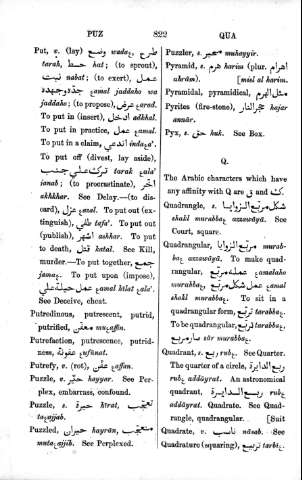 PUZ 822 QUA
Put, v. (lay) وضع wadaع, طرح
tarah, حط hat; (to sprout),
نبت nabat; (to exert), عمل
جد وجهده عamal jaddaho wa
jaddaho; (to propose), عرض عarad.
To put in (insert), ادخل adkhal.
To put in practice, عمل عamal.
To put in a claim, ادعى indaعa'.
To put off (divest, lay aside),
ترك على جنب tarak عala'
ianab; (to procrastinate), اخر
akhkhar. See Delay.—(to dis-
card), عزل عamal. To put out (ex-
tinguish), طفى tafa'. To put out
(publish), اشهر ashhar. To put
to death, قتل katal. See Kill,
murder.—To put together, جمع
jamaع. To put upon (impose),
عمل حيلة على عamal hîlat عala'.
See Deceive, cheat.
Putredinous, putrescent, putrid,
putrified, معفن muعaffin.
Putrefaction, putrescence, putrid-
ness, عفونة عufûnat.
Putrefy, v. (rot), عفن عaffan.
Puzzle, v. حير hayyar. See Per-
plex, embarrass, confound.
Puzzle, s. حيرة hîrat, تعجب
taعajjub.
Puzzled, حيران hayrân, متعجب
mutaعajjib. See Perplexed.
Puzzler, s. محير muhayyir.
Pyramid, s. هرم harim (plur. اهرام
ahrâm). [miel al harim.
Pyramidal, pyramidical, مثل الهرم
Pyrites (fire-stone), حجر النار hajar
annâr.
Pyx, s. حق huk. See Box.
Q.
The Arabic characters which have
any affinity with Q are ق and ك.
Quadrangle, s. شكل مربع الزوايا
shakl murabbaع azzawâyâ. See
Court, square.
Quadrangular, مربع الزوايا murab-
baع azzawâyâ. To make quad-
rangular, عمله مربع عamalaho
murabbaع, عمل شكل مربع عamal
shakl murabbaع. To sit in a
quadrangular form, تربع tarabbaع.
To be quadrangular, تربع tarabbaع,
صار مربع sâr murabbaع.
Quadrant, s. ربع rubع. See Quarter.
The quarter of a circle, ربع الدايرة
rubع addâyrat. An astronomical
quadrant, ربع الدايرة rubع
addâyrat. Quadrate. See Quad-
rangle, quadrangular. [Suit
Quadrate, v. ناسب nâsab. See
Quadrature (squaring), تربيع tarbîع.